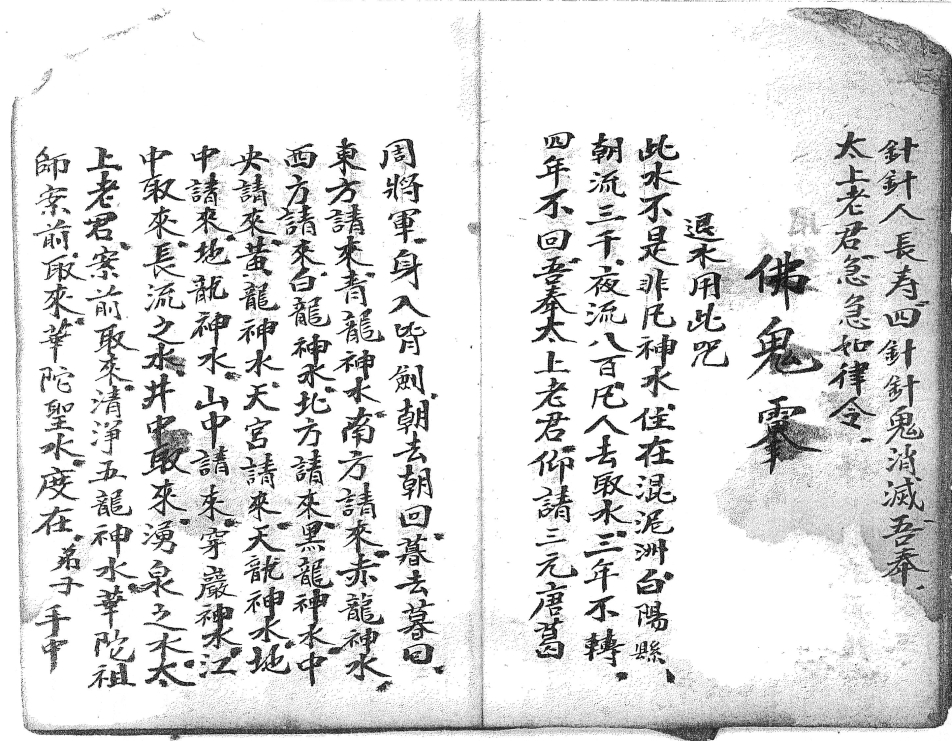 針針人長寿四針針鬼消滅吾奉
太上老君急急如律令
佛鬼
退水用此咒
此水不是非凡神水住在混泥洲白陽縣
朝流三千夜流八百凡人去取水三年不轉
四年不回吾奉太上老君仰請三元唐葛
周將軍身入皆劍朝去朝回暮去暮回
東方請來青龍神水南方請來赤龍神水
西方請來白龍神水北方請來黑龍神水中
央請來黃龍神水天宮請來天龍神水地
中請來地龍神水山中請来穿巖神水江
中取來長流之水井中取來湧泉之水太
上老君案前取來清淨五龍神水華陀祖
師案前取來華陀聖水度在弟子手中